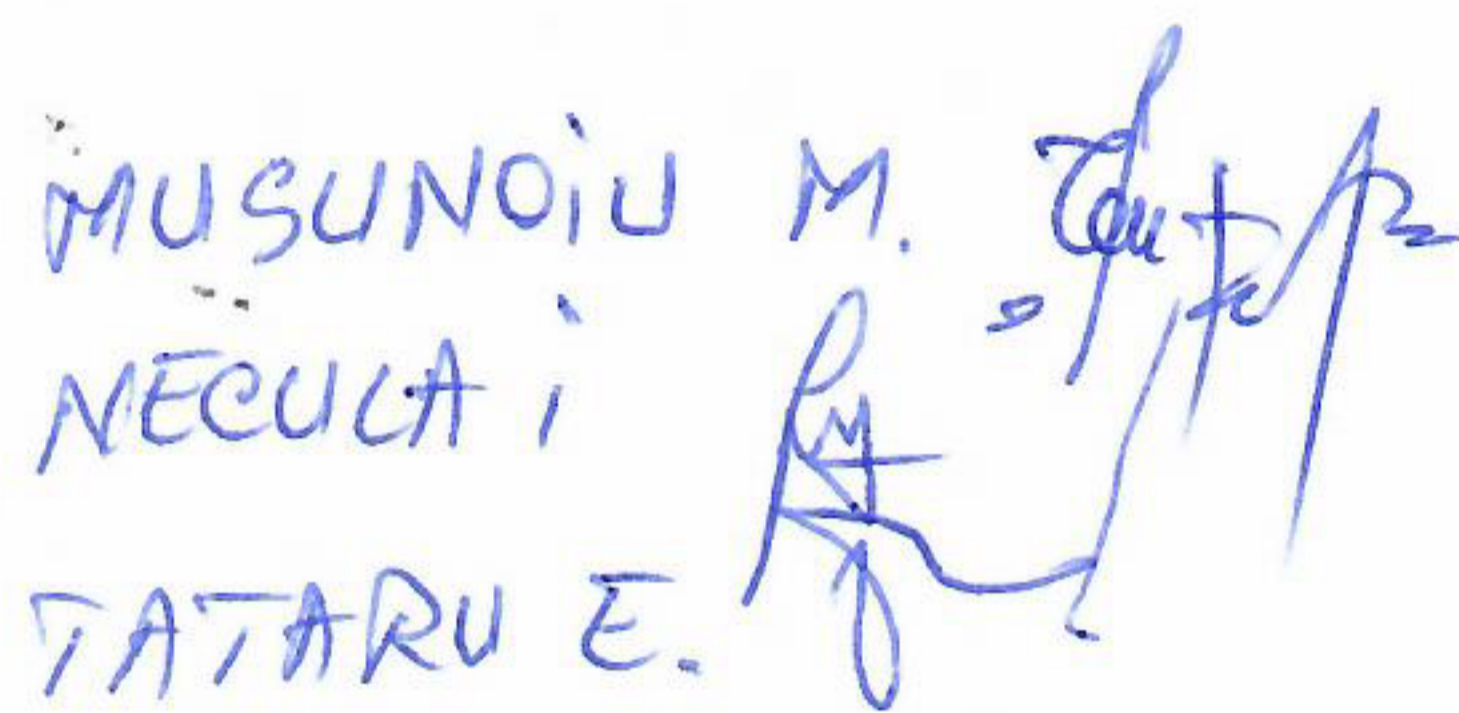 MUSUNOiU M.
NECULAi
TATARU E.